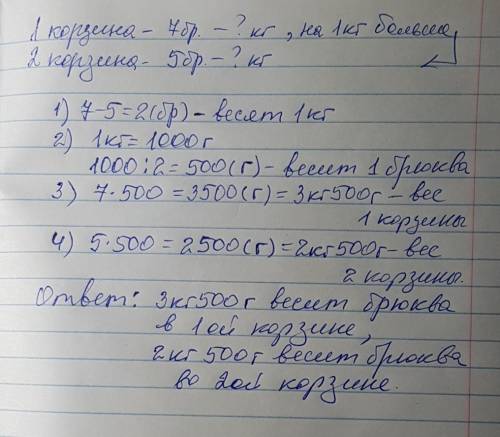 1 корзина - 7бр. - ? кг, на 1кг больше,
2 корзина - 5бр - ? кг
1) 7-5=2(бр) - весят 1кг
2) 1кг = 1000г
1000:2=500(г) - весит 1 брюква
3) 7·500=3500(г)=3кг500г - вес
1 корзины
4) 5·500=2500(г)=2кг500г - вес
2 корзины.
Ответ: 3кг500г весит брюква
в 1ой корзине,
2кг500г весит брюква
во 2ой корзине.